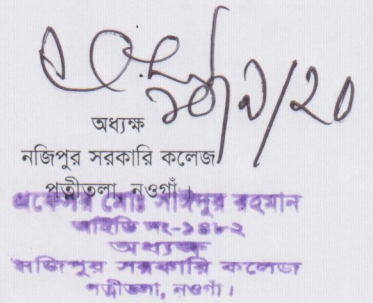 ২০/৯/২০
অধ্যক্ষ
নজিপুর সরকারি কলেজ
পত্নীতলা, নওগাঁ।
প্রফেসর মোঃ রহমান
আইডি নং-১৪৮২
অধ্যক্ষ
নজিপুর সরকারি কলেজ
পত্নীতলা, নওগাঁ।